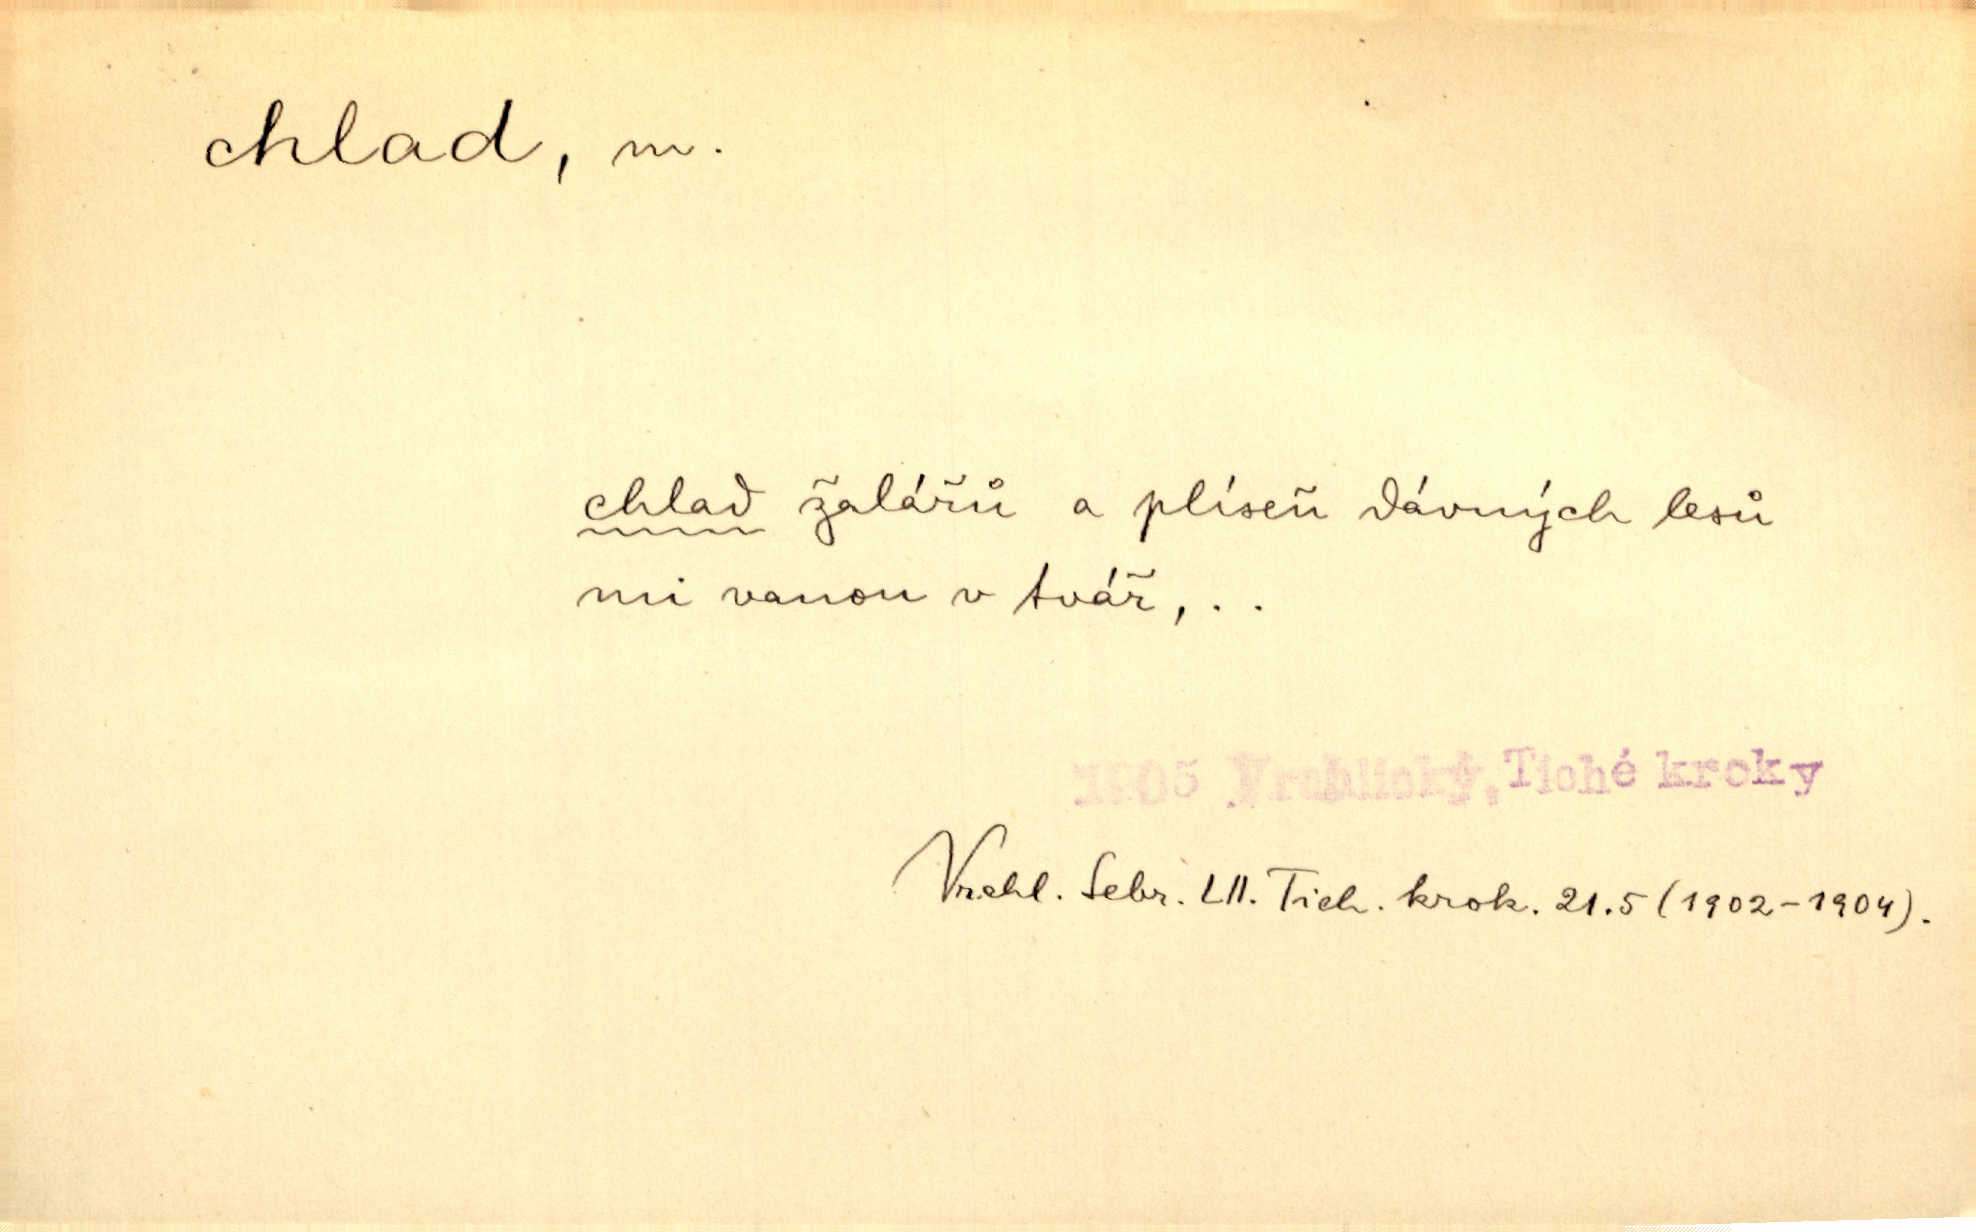 chlad, m.
chlad žalářů a plíseň dávných lesů
mi vanou v tvář, . .
1905 Vrchlický, Tiché kroky
Vrchl. Sebr. LII. Tich. krok. 21.5 (1902-1904).